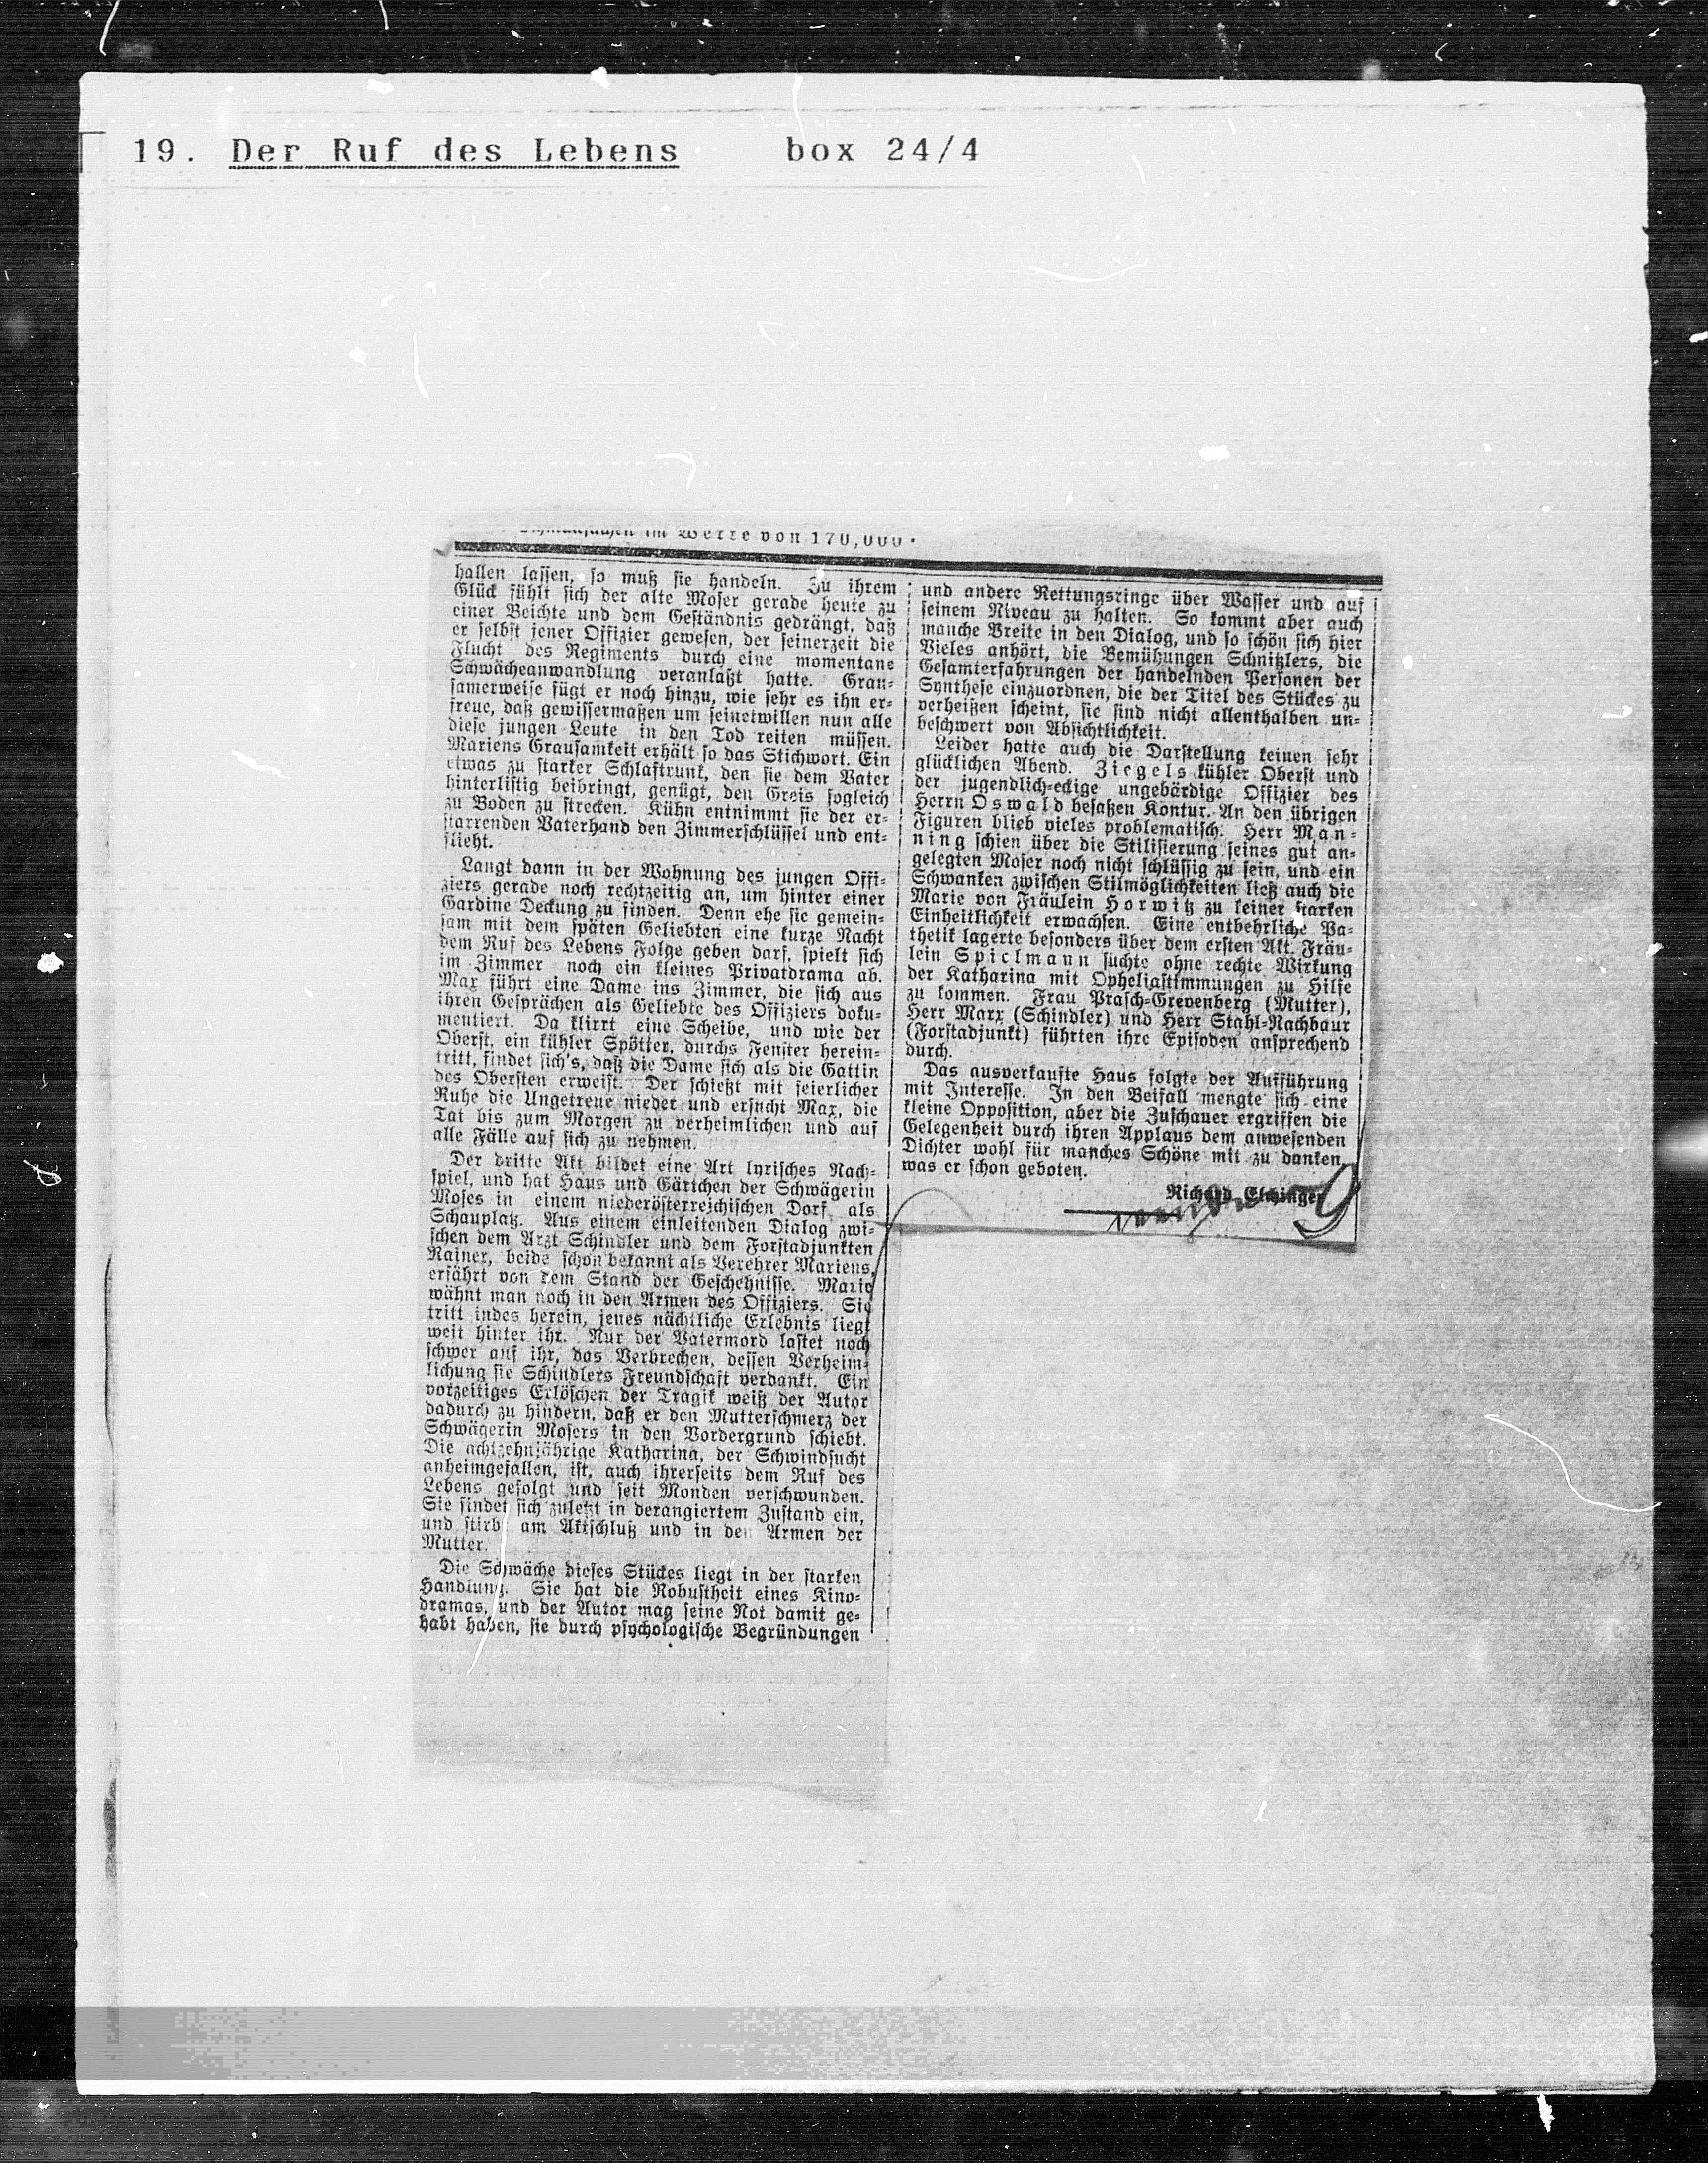 19. Der Ruf des Lebens box 24/4
im Werte von 170,000
hallen lassen, so muß sie handeln. Zu ihrem
Glück fühlt sich der alte Moser gerade heute zu
einer Beichte und dem Geständnis gedrängt, daß
er selbst jener Offizier gewesen, der seinerzeit die
Flucht des Regiments durch eine momentane
Schwächeanwandlung veranlaßt hatte. Grau-
samerweise fügt er noch hinzu, wie sehr es ihn er-
freue, daß gewissermaßen um seinetwillen nun alle
diese jungen Leute in den Tod reiten müssen.
Mariens Grausamkeit erhält so das Stichwort. Ein
etwas zu starker Schlaftrunk, den sie dem Vater
hinterlistig beibringt, genügt, den Greis sogleich
zu Boden zu strecken. Kühn entnimmt sie der er-
starrenden Vaterhand den Zimmerschlüssel und ent-
flieht.
Langt dann in der Wohnung des jungen Offi-
ziers gerade noch rechtzeitig an, um hinter einer
Gardine Deckung zu finden. Denn ehe sie gemein-
sam mit dem späten Geliebten eine kurze Nacht
dem Ruf des Lebens Folge geben darf, spielt sich
im Zimmer noch ein kleines Privatdrama ab.
Max führt eine Dame ins Zimmer, die sich aus
ihren Gesprächen als Geliebte des Offiziers doku-
mentiert. Da klirrt eine Scheibe, und wie der
Oberst, ein kühler Spötter, durchs Fenster herein-
tritt, findet sich's, daß die Dame sich als die Gattin
des Obersten erweist. Der schießt mit feierlicher
Ruhe die Ungetreue nieder und ersucht Max, die
Tat bis zum Morgen zu verheimlichen und auf
alle Fälle auf sich zu nehmen.
Der dritte Akt bildet eine Art lyrisches Nach-
spiel, und hat Haus und Gärtchen der Schwägerin
Moses in einem niederösterreichischen Dorf als
Schauplatz. Aus einem einleitenden Dialog zwi-
schen dem Arzt Schindler und dem Forstadjunkten
Rainer, beide schon bekannt als Verehrer Mariens,
erfährt von dem Stand der Geschehnisse. Marie
wähnt man noch in den Armen des Offiziers. Sie
tritt indes herein, jenes nächtliche Erlebnis liegt
weit hinter ihr. Nur der Vatermord lastet noch
schwer auf ihr, das Verbrechen, dessen Verheim-
lichung sie Schindlers Freundschaft verdankt. Ein
vorzeitiges Erlöschen der Tragik weiß der Autor
dadurch zu hindern, daß er den Mutterschmerz der
Schwägerin Mosers in den Vordergrund schiebt.
Die achtzehnjährige Katharina, der Schwindsucht
anheimgefallen, ist, auch ihrerseits dem Ruf des
Lebens gefolgt und seit Monden verschwunden.
Sie findet sich zuletzt in derangiertem Zustand ein,
und stirbt am Aktschluß und in den Armen der
Mutter.
Die Schwäche dieses Stückes liegt in der starken
Handlung. Sie hat die Robustheit eines Kino-
dramas, und der Autor mag seine Not damit ge-
habt haben, sie durch psychologische Begründungen
und andere Rettungsringe über Wasser und auf
seinem Niveau zu halten. So kommt aber auch
manche Breite in den Dialog, und so schön sich hier
Vieles anhört, die Bemühungen Schnitzlers, die
Gesamterfahrungen der handelnden Personen der
Synthese einzuordnen, die der Titel des Stückes zu
verheißen scheint, sie sind nicht allenthalben un-
beschwert von Absichtlichkeit.
Leider hatte auch die Darstellung keinen sehr
glücklichen Abend. Ziegels kühler Oberst und
der jugendlich-eckige ungebärdige Offizier des
Herrn Oswald besaßen Kontur. An den übrigen
Figuren blieb vieles problematisch. Herr Man-
ning schien über die Stilisierung seines gut an-
gelegten Moser noch nicht schlüssig zu sein, und ein
Schwanken zwischen Stilmöglichkeiten ließ auch die
Marie von Fräulein Horwitz zu keiner starken
Einheitlichkeit erwachsen. Eine entbehrliche Pa-
thetik lagerte besonders über dem ersten Akt. Fräu-
lein Spielmann suchte ohne rechte Wirkung
der Katharina mit Opheliastimmungen zu Hilfe
zu kommen. Frau Prasch-Grevenberg (Mutter),
Herr Marx (Schindler) und Herr Stahl-Nachbaur
(Forstadjunkt) führten ihre Episoden ansprechend
durch.
Das ausverkaufte Haus folgte der Aufführung
mit Interesse. In den Beifall mengte sich eine
kleine Opposition, aber die Zuschauer ergriffen die
Gelegenheit durch ihren Applaus dem anwesenden
Dichter wohl für manches Schöne mit zu danken,
was er schon geboten.
Richard Elchinger